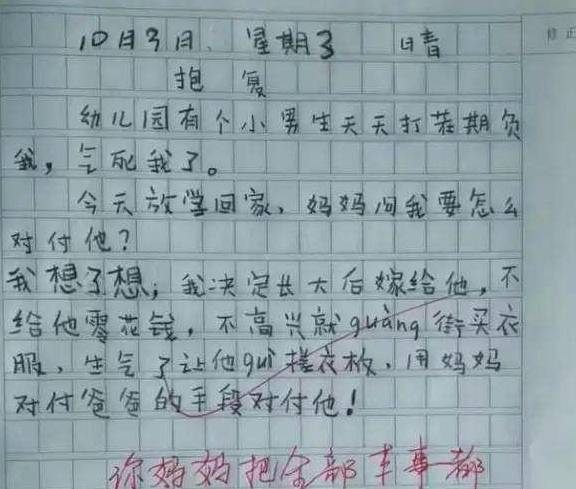 10月3日、星期3 晴
抱复
幼儿园有个小男生天天打荖期负
我，气死我了。
今天放学回家、妈妈问我要怎么
对付他？
我想了想，我决定长大后嫁给他，不
给他零花钱，不高兴就guàng街买衣
服、生气了让他guì搓衣板、用妈妈
对付爸爸的手段对付他！
你妈妈把全部本事都
修正